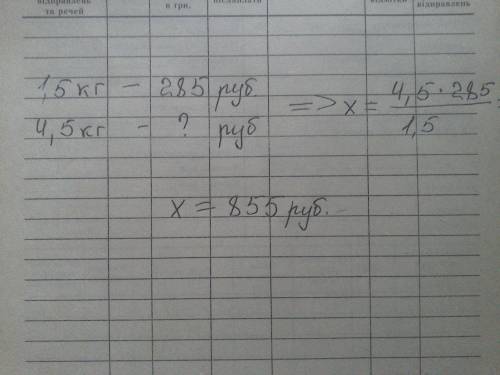 відправлень
та речей
в грн.
відправлень
1,5 кг – 285 руб.
4,5 кг – ? руб
=> x = 4,5 · 285 / 1,5
x = 855 руб.